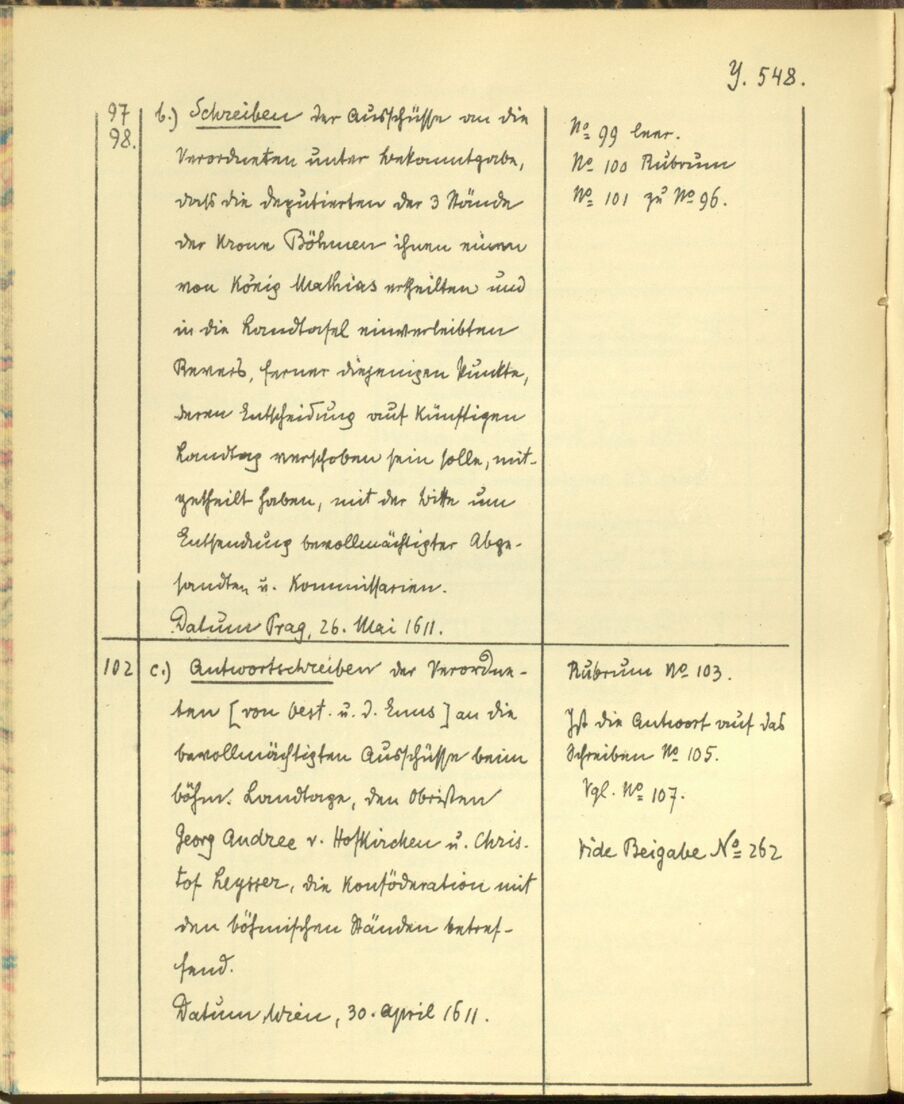 Y. 548.
97
98.
b.) Schreiben der Ausschüsse an die
Verordneten unter Bekanntgabe,
dass die Deputierten der 3 Stände
der Krone Böhmen ihnen einen
von König Mathias ertheilten und
in die Landtafel einverleibten
Revers, ferner diejenigen Punkte,
deren Entscheidung auf künftigen
Landtag verschoben sein solle, mit-
getheilt haben, mit der Bitte um
Entsendung bevollmächtigter Abge-
sandten u. Kommissarien.
Datum Prag, 26. Mai 1611.
No 99 leer.
No 100 Rubrum
No 101 zu No 96.
102
c.) Antwortschreiben der Verordne-
ten [von Oest. u. d. Enns] an die
bevollmächtigten Ausschüsse beim
böhm. Landtage, den Obristen
Georg Andree v. Hofkirchen u. Chris-
tof Leysser, die Konföderation mit
den böhmischen Ständen betref-
fend.
Datum, Wien, 30. April 1611.
Rubrum No 103.
Ist die Antwort auf das
Schreiben No 105.
Vgl. No 107.
Vide Beigabe No 262